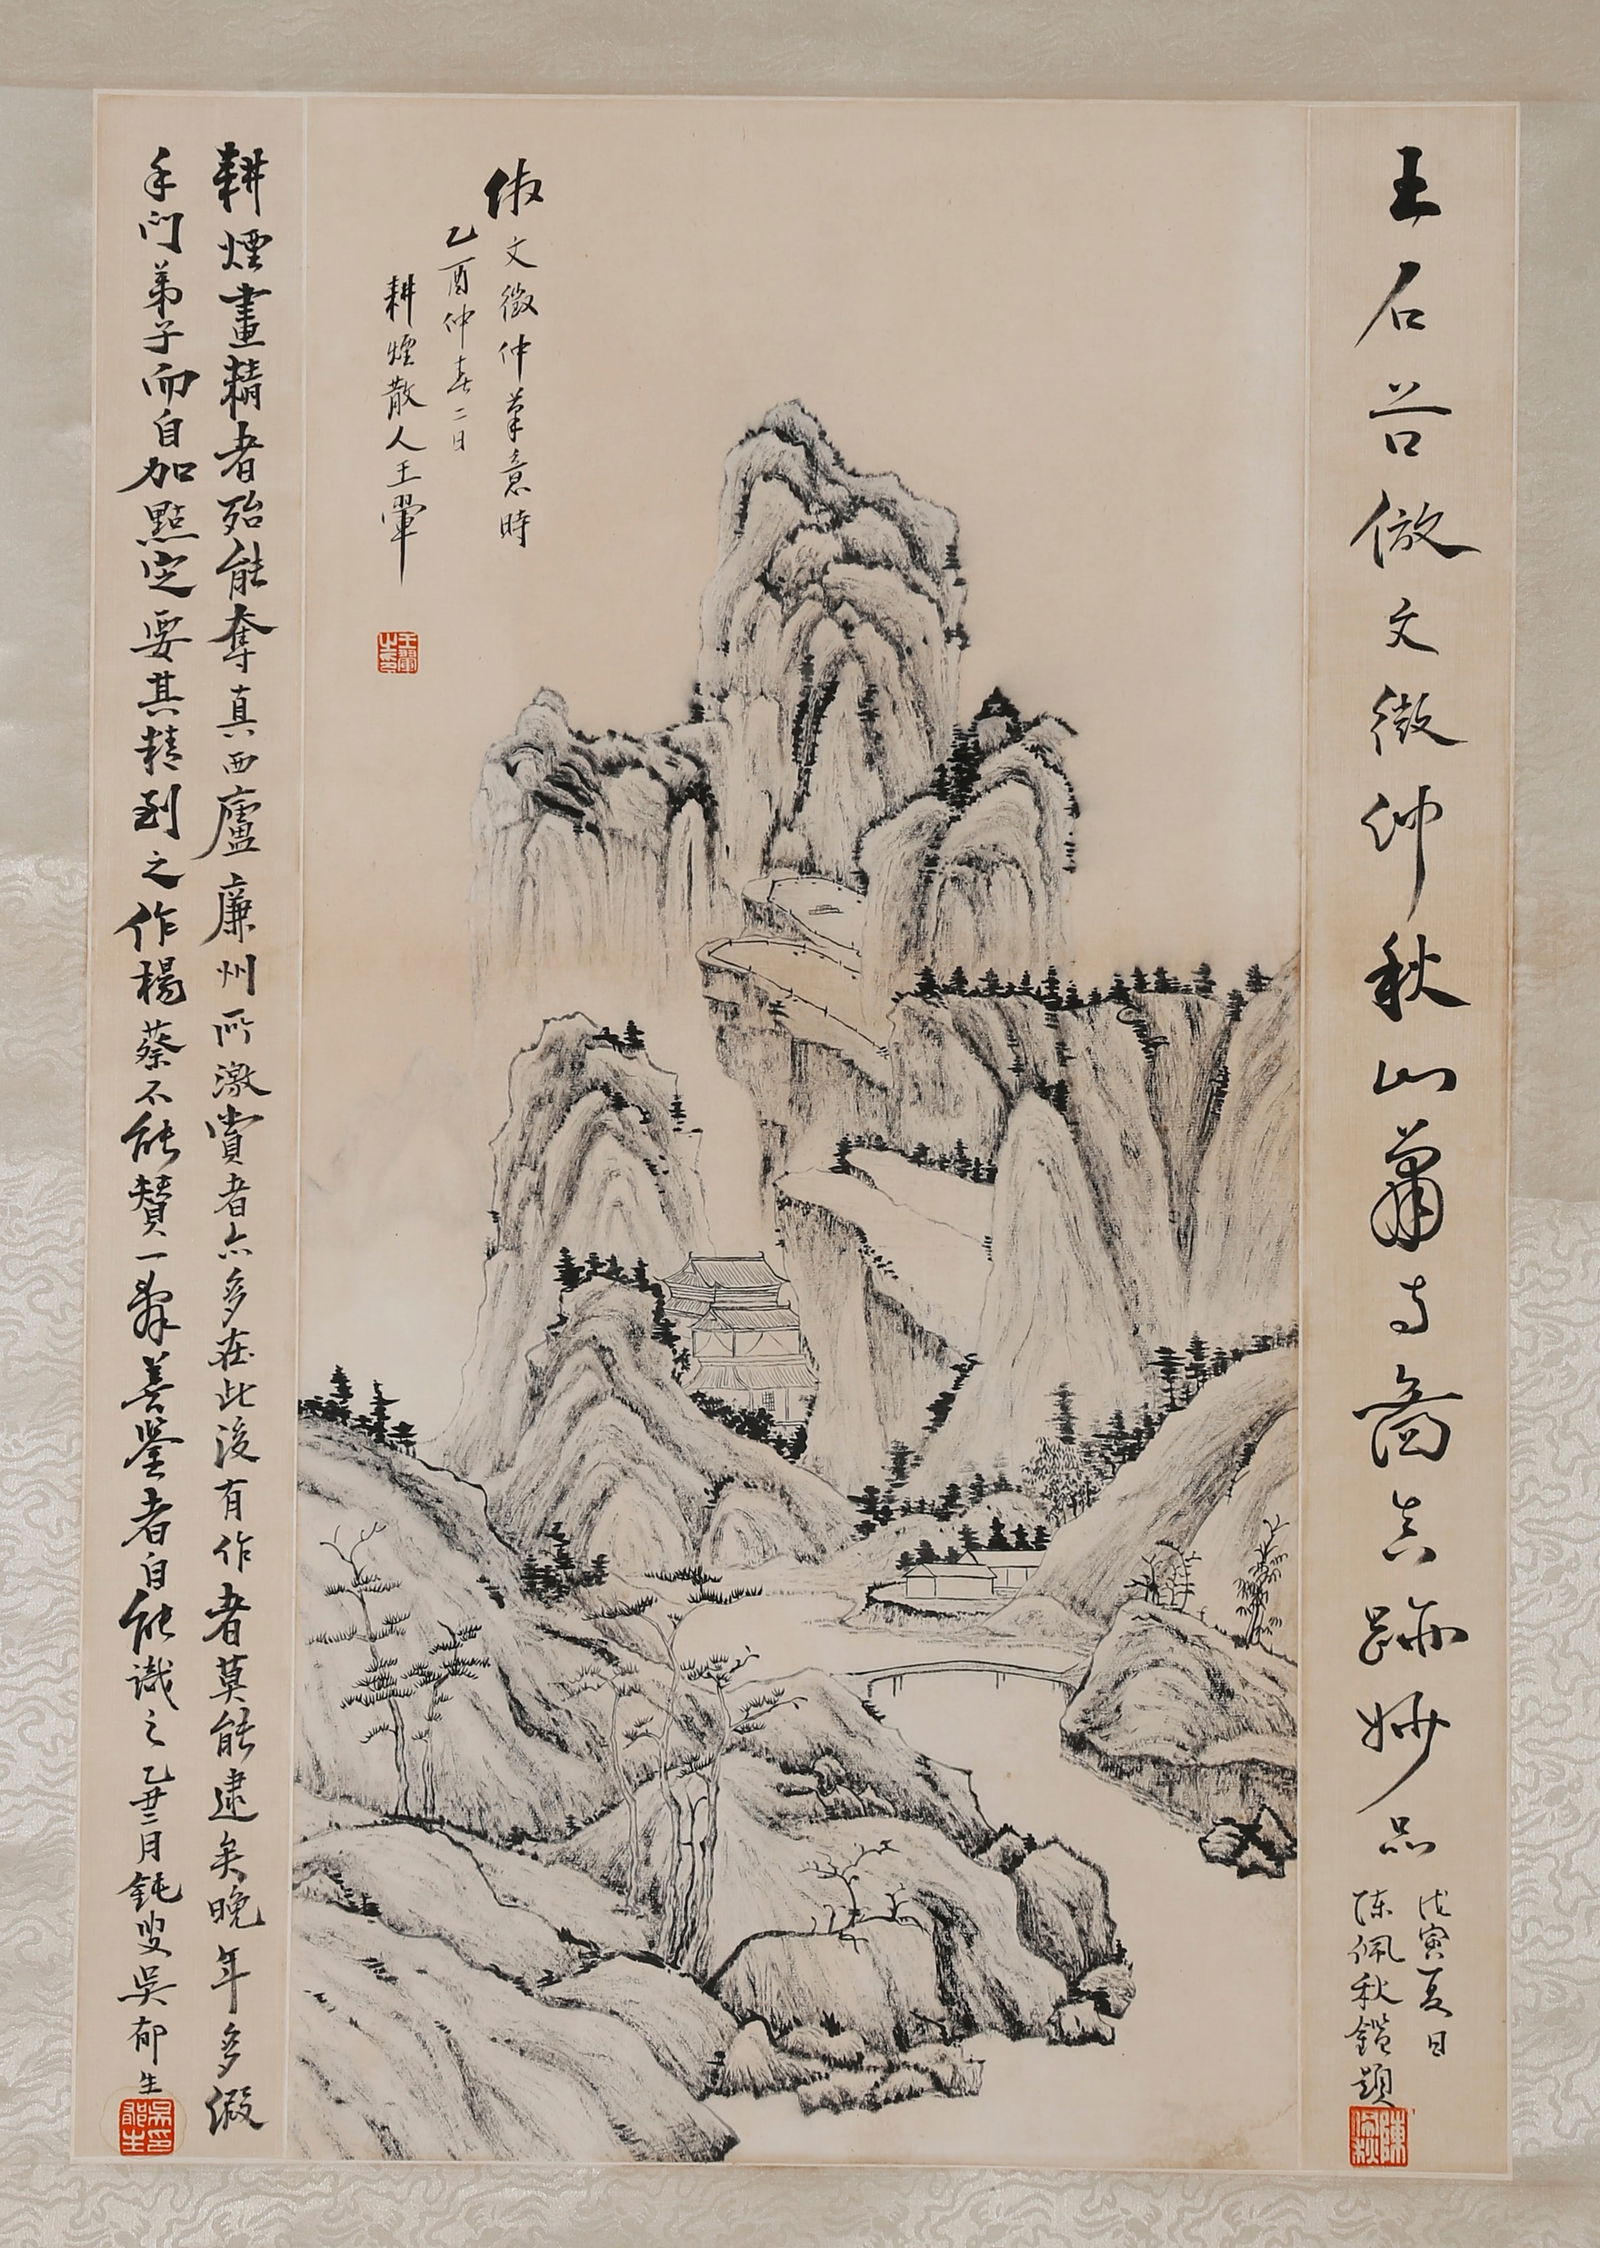 王石谷倣文徵仲秋山蕭寺啚真跡妙品
戊寅夏日
陈佩秋鑑題
陳佩秋
仿文徵仲筆意時
乙酉仲春二日
耕煙散人王翚
王翬之印
耕煙畫精者殆能奪真西廬廉州所激賞者亦多在此後有作者莫能逮矣晚年多假
手門弟子而自加點定要其精到之作楊蔡不能贊一辤善鉴者自能識之乙丑二月鈍叟吳郁生
吳郁生印